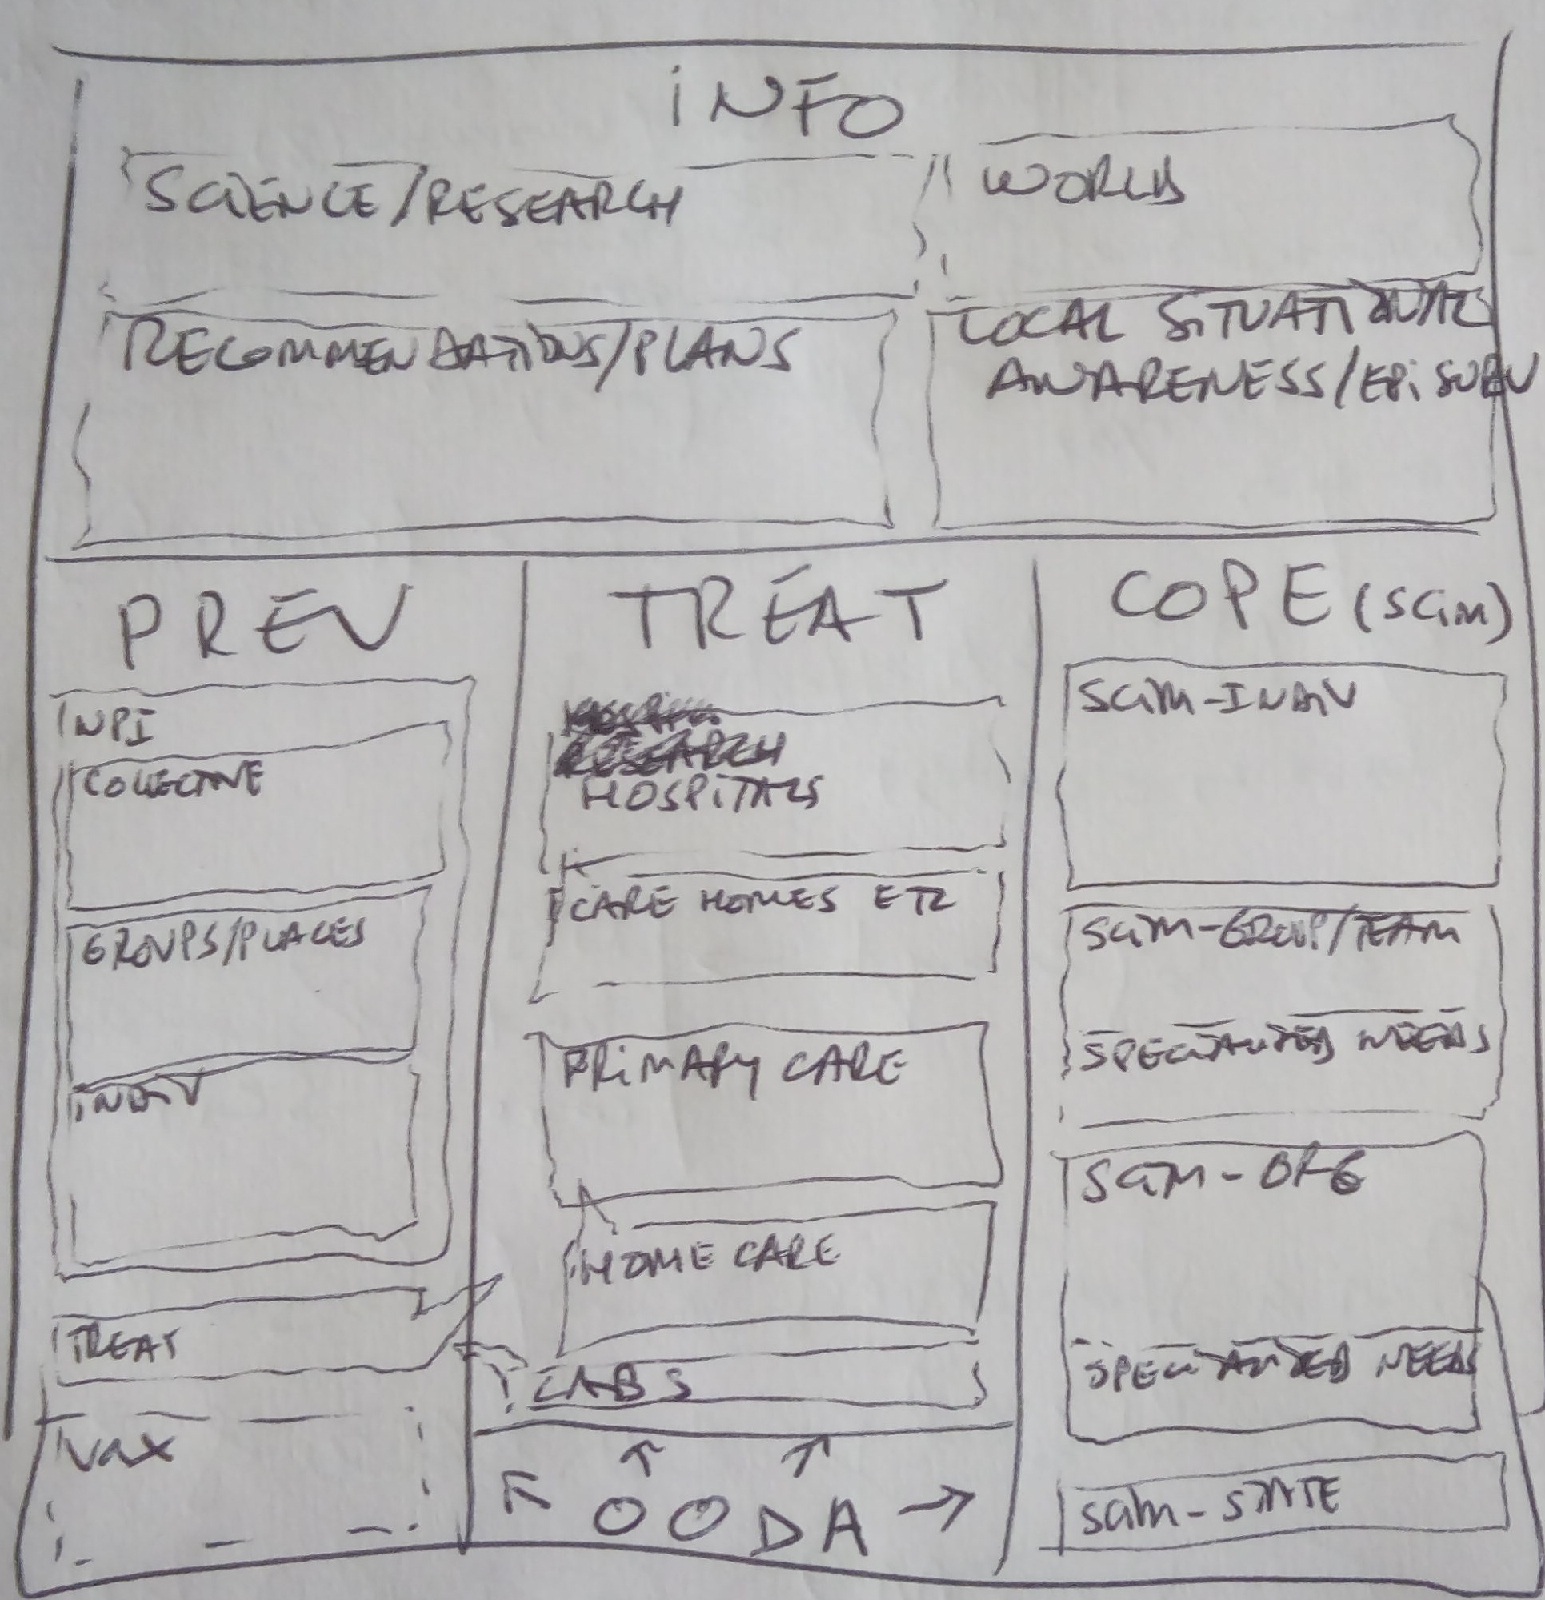 iNFO
SCiENCE/RESEARCH
WORLD
RECOMMENDATiONS/PLANS
LOCAL SiTUATiONAL
AWARENESS/EPi SURV
PREV
NPI
COLECTIVE
GROUPS/PLACES
iNDiV
TREAT
VAX
TREAT
RESEARCH
HOSPiTALS
CARE HOMES ETC
PRiMARY CARE
HOME CARE
LABS
OODA
COPE (SCiM)
SCiM-INDiV
SCiM-GROUP/TEAM
SPECiALiZED NEEDS
SCiM-ORG
SPECiALiZED NEEDS
SCiM-STATE